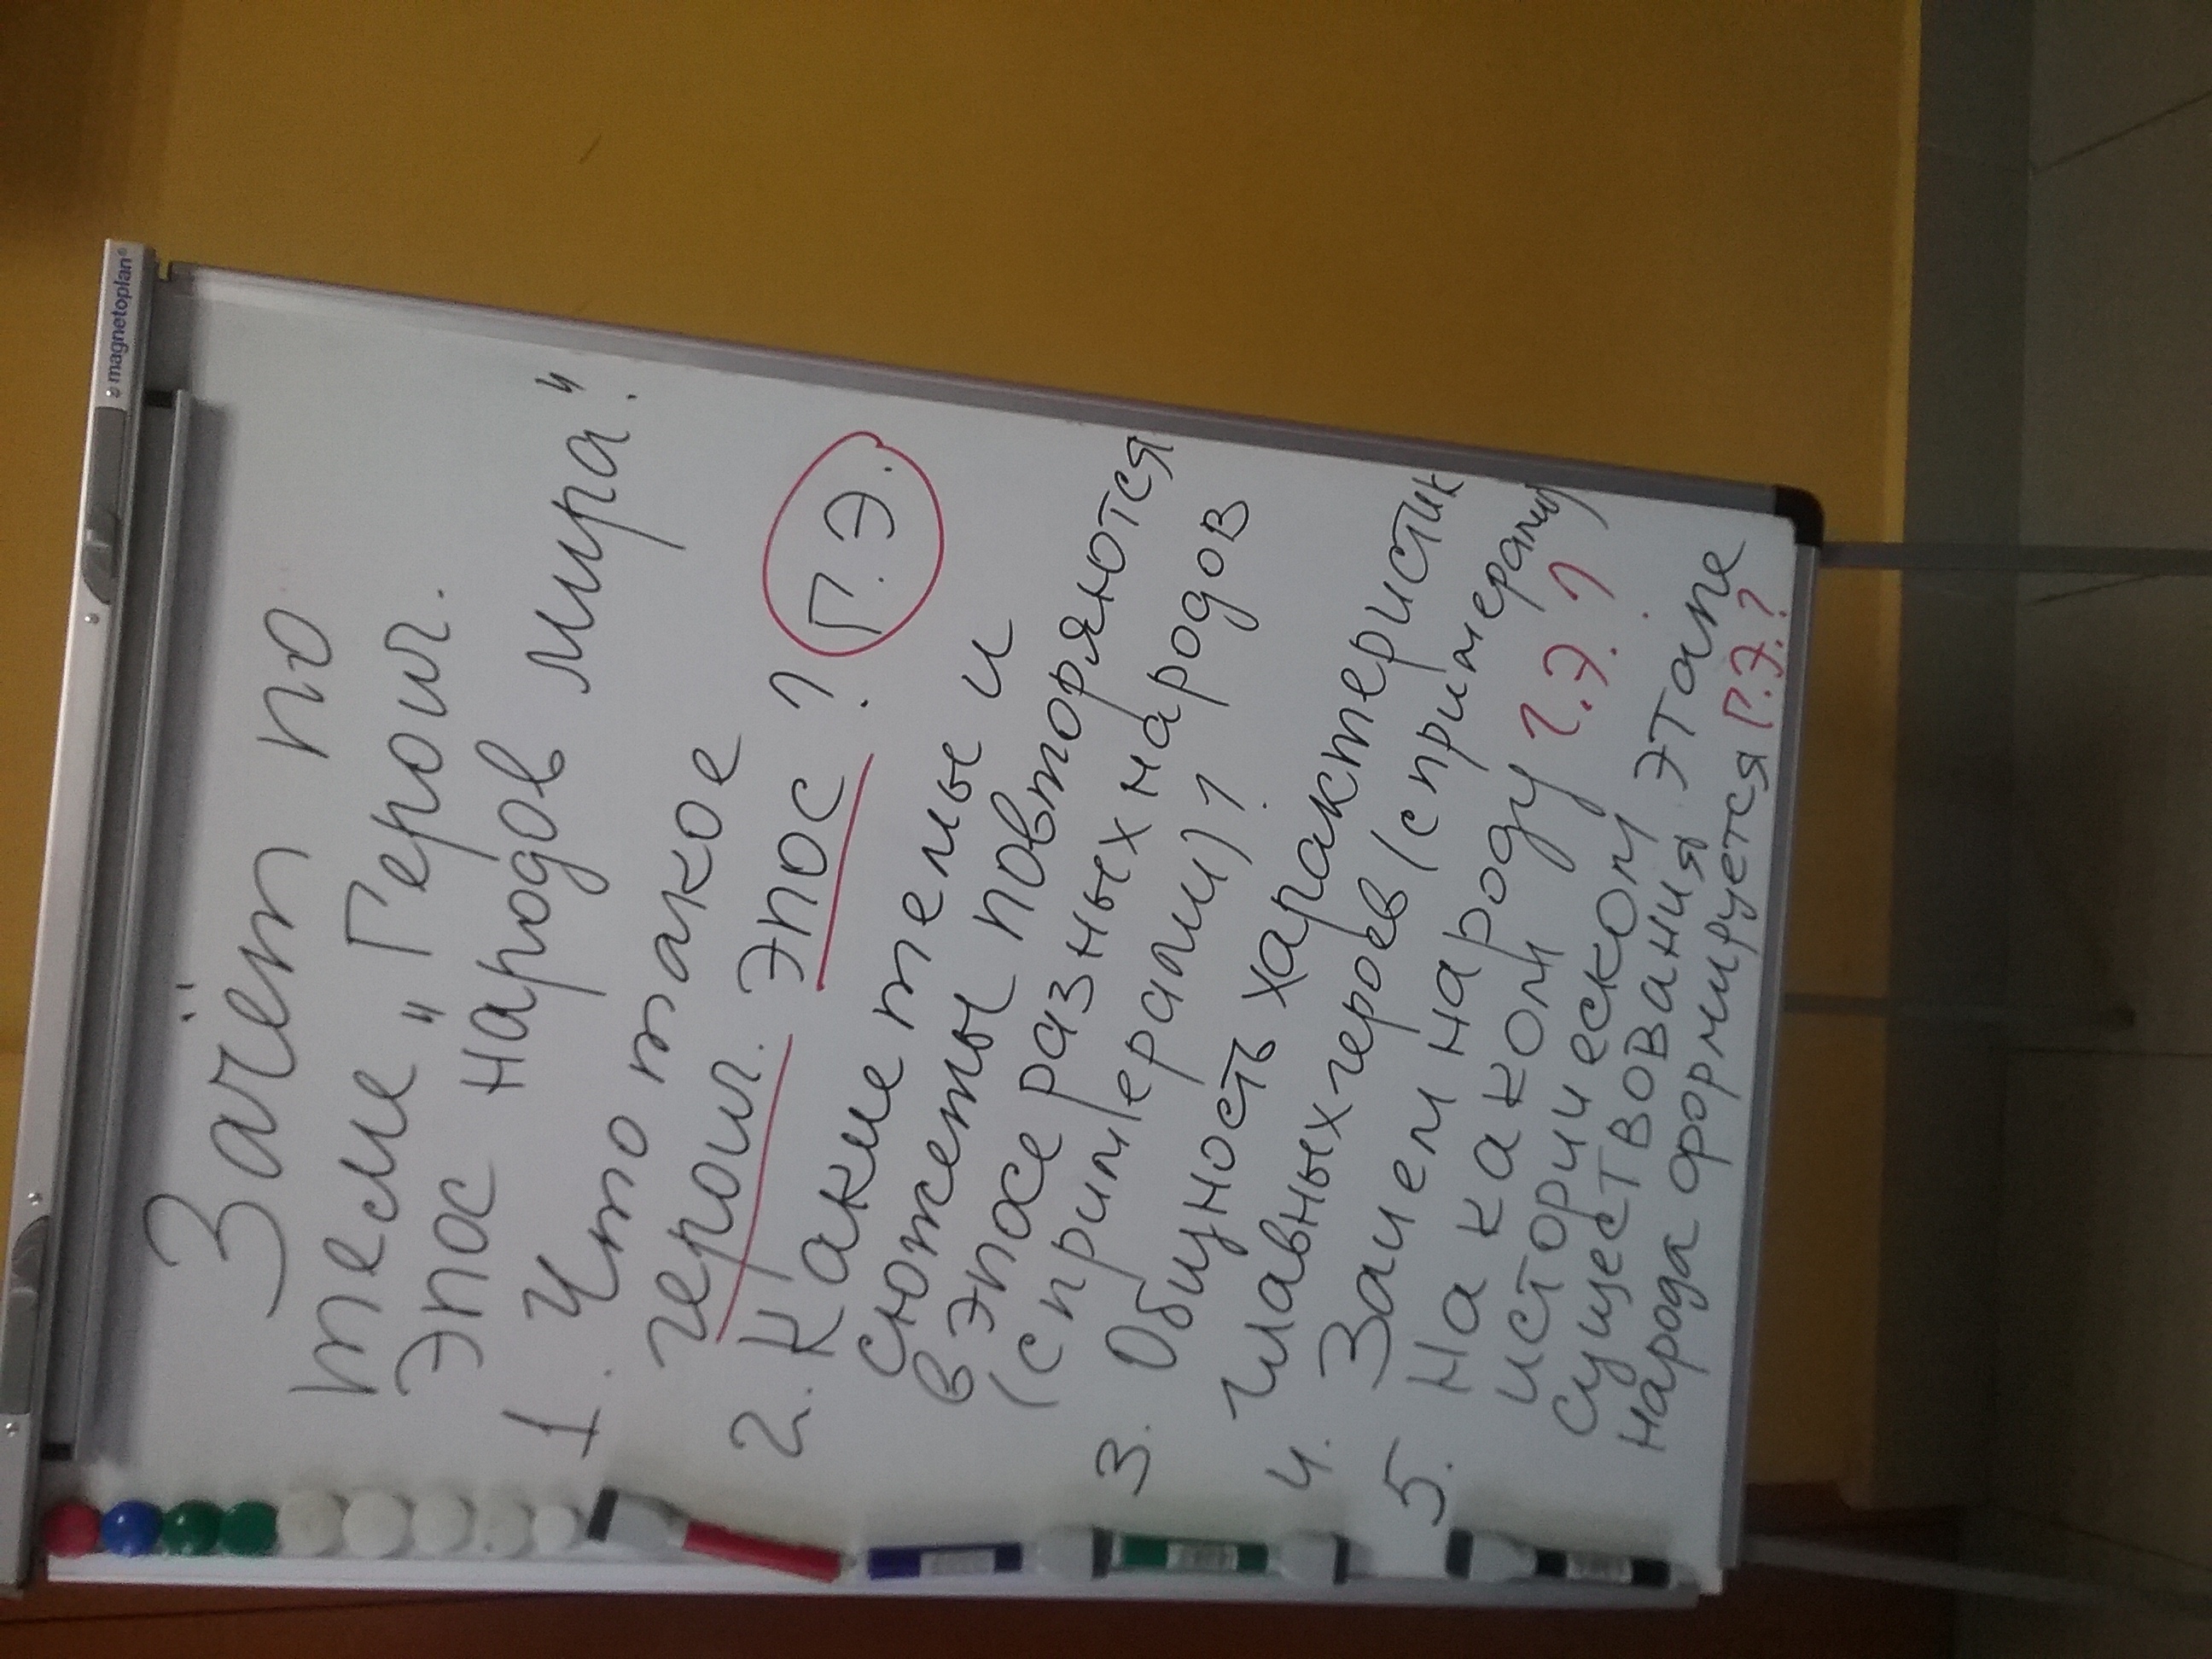 magnetoplan®
Зачёт по
теме „Героич.
эпос народов мира."
1. Что такое
героич. эпос? Г.Э.
2. Какие темы и
сюжеты повторяются
в эпосе разных народов
(с примерами)?
3. Общность характеристик
главных героев (с примерами)
4. Зачем народу г.э.?
5. На каком
историческом этапе
существования
народа формируется Г.Э.?